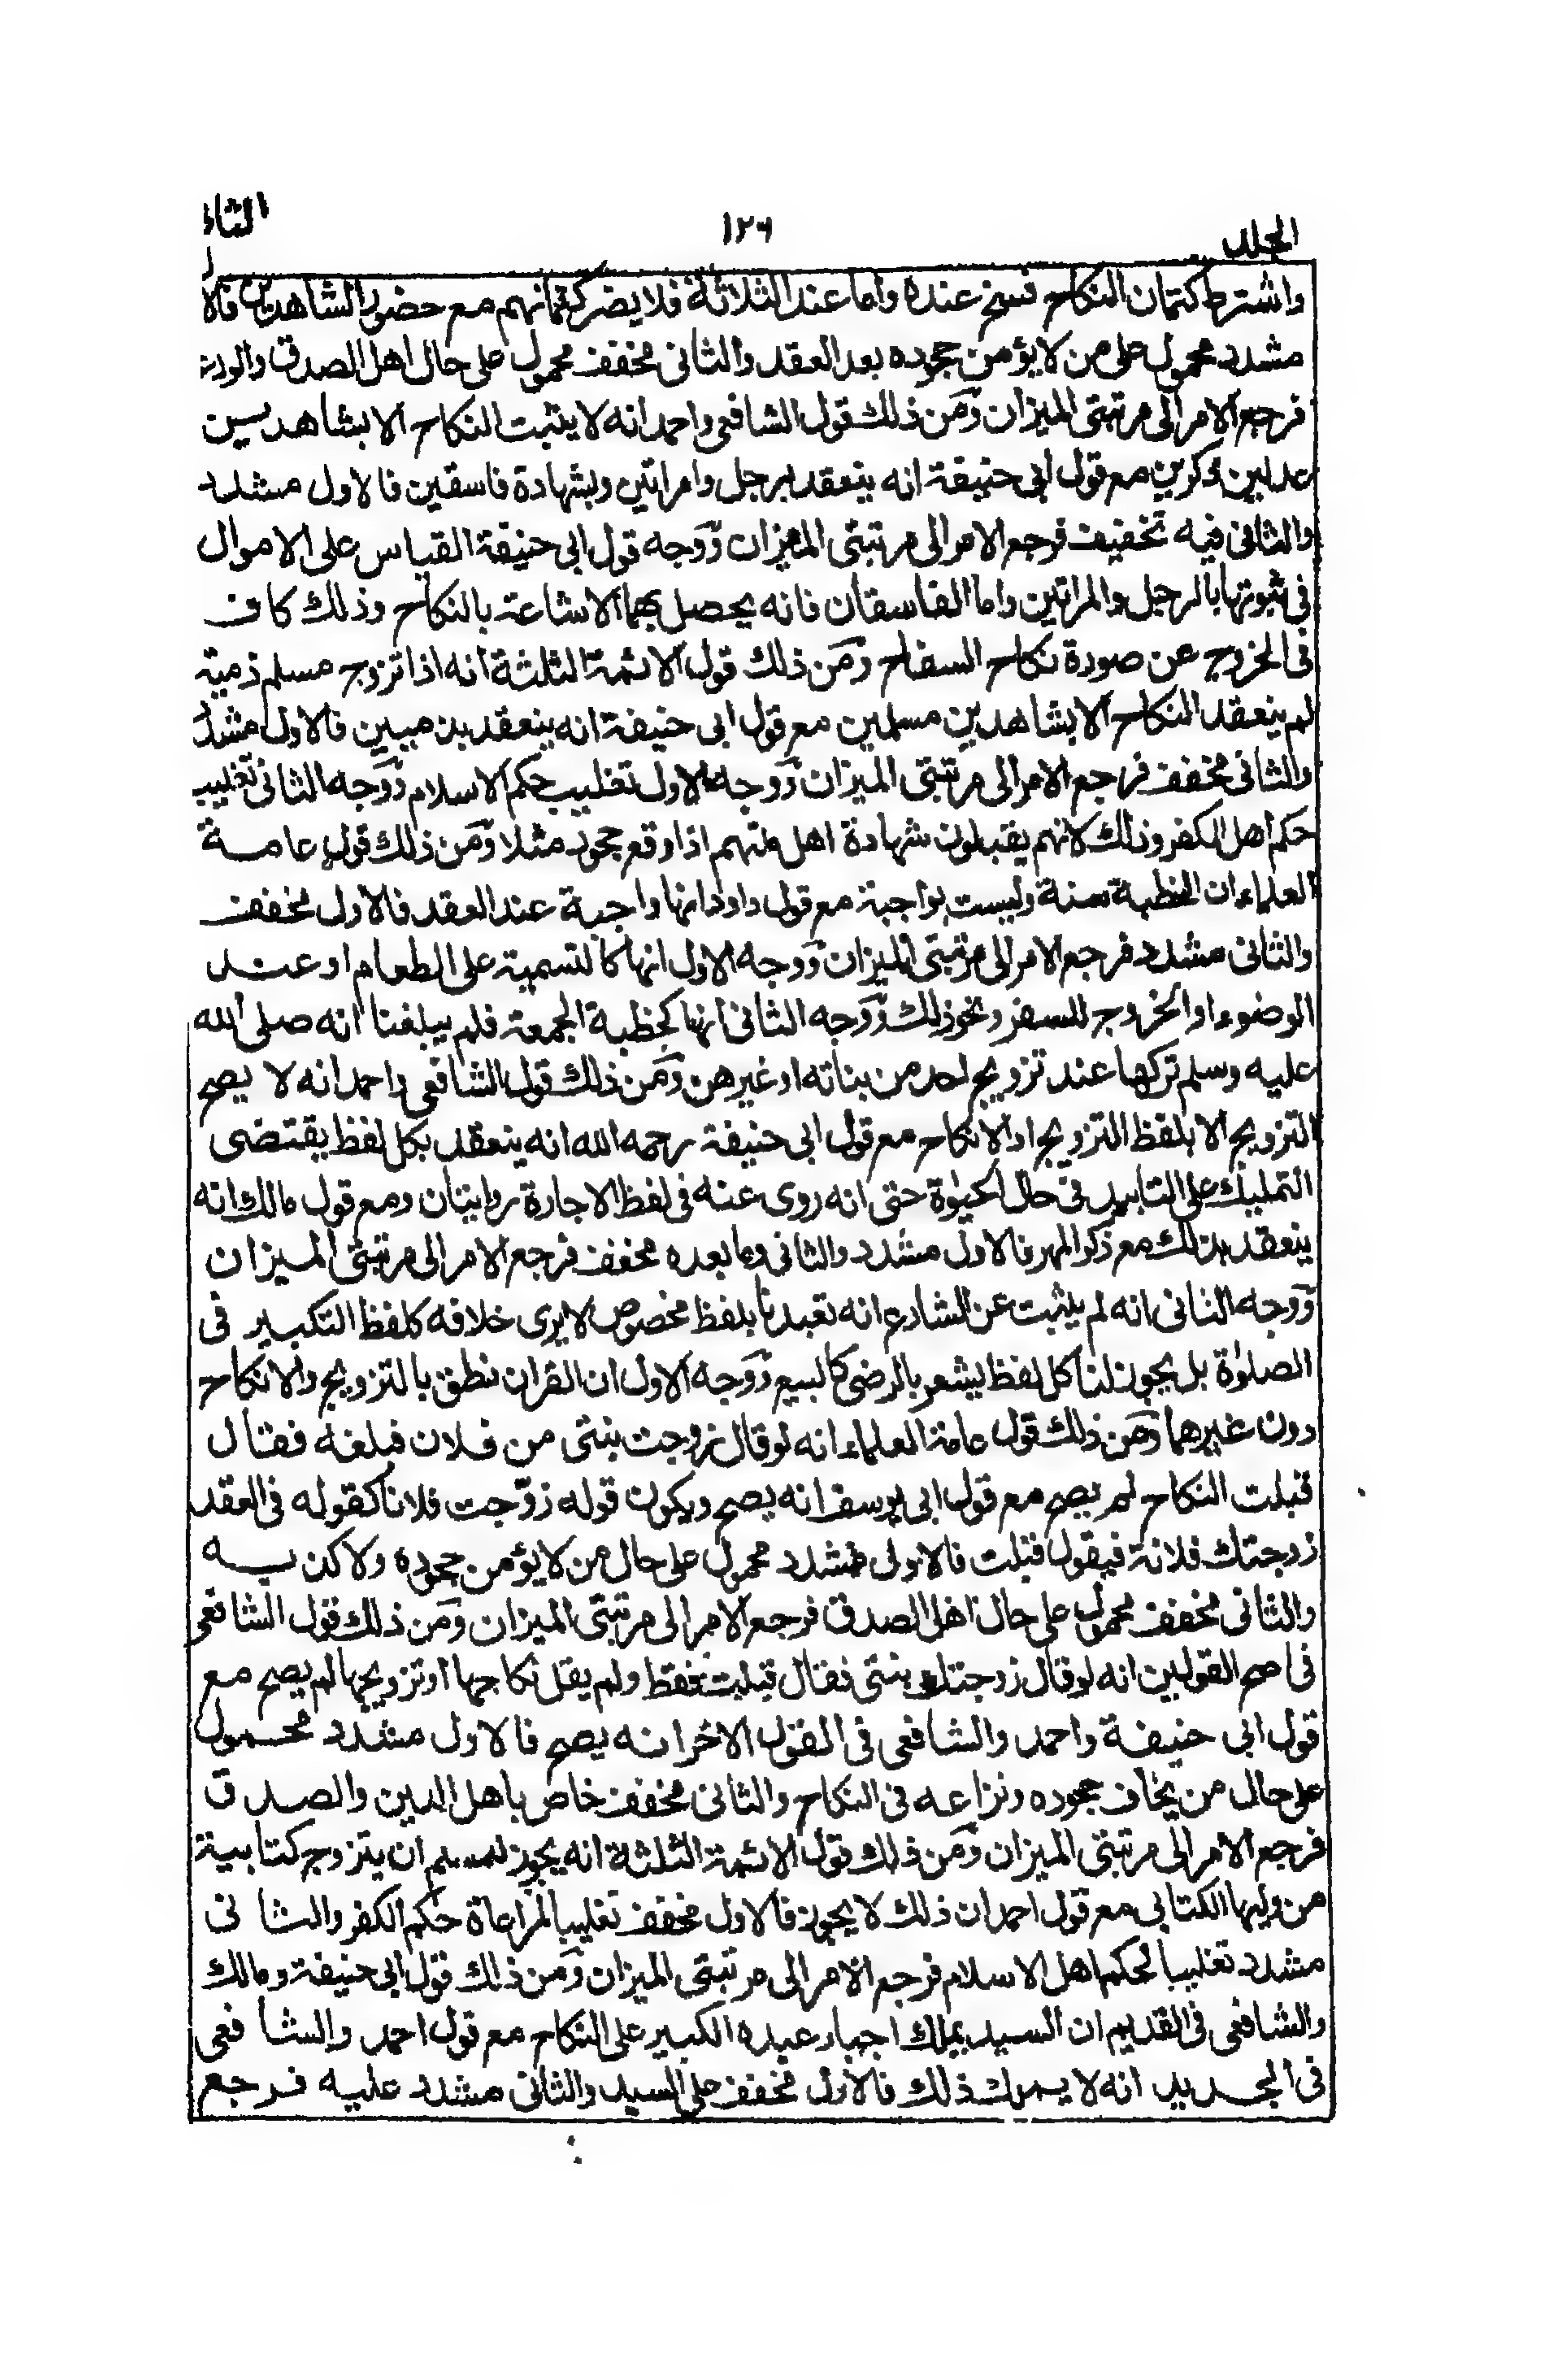 الجلد ١٢٦ الثا
واشترط كتمان النكاح فسخ عنده وأما عند الثلاثة فلا يضر كتمانهم مع حضور الشاهدين فالا
مشدد محمول على من لا يؤمن جحوده بعد العقد والثانى مخفف محمول على حال اهل الصدق والور
فرجع الامر الى مرتبتى الميزان ومن ذلك قول الشافعى واحمد انه لا يثبت النكاح الا بشاهدين
عدلين ذكرين مع قول ابى حنيفة انه ينعقد برجل وامراتين وبشهادة فاسقين فالاول مشدد
والثانى فيه تخفيف فرجع الامر الى مرتبتى الميزان ووجه قول ابى حنيفة القياس على الاموال
فى ثبوتها بالرجل والمراتين واما الفاسقان فانه يحصل بهما الاشاعة بالنكاح وذلك كاف
فى الخروج عن صورة نكاح السفاح ومن ذلك قول الائمة الثلثة انه اذا تزوج مسلم ذمية
لم ينعقد النكاح الا بشاهدين مسلمين مع قول ابى حنيفة انه ينعقد بذميين فالاول مشدد
والثانى مخفف فرجع الامر الى مرتبتى الميزان ووجه الاول تغليب حكم الاسلام ووجه الثانى تغليب
حكم اهل الكفر وذلك لانهم يقبلون شهادة اهل ملتهم اذا وقع جحود مثلا ومن ذلك قول عامة
العلماء ان الخطبة سنة وليست بواجبة مع قول داود انها واجبة عند العقد فالاول مخفف
والثانى مشدد فرجع الامر الى مرتبتى الميزان ووجه الاول انها كالتسمية على الطعام او عند
الوضوء او الخروج للسفر ونحو ذلك ووجه الثانى انها كخطبة الجمعة فلم يبلغنا انه صلى الله
عليه وسلم تركها عند تزويج احد من بناته او غيرهن ومن ذلك قول الشافعى واحمد انه لا يصح
التزويج الا بلفظ التزويج او الانكاح مع قول ابى حنيفة رحمه الله انه ينعقد بكل لفظ يقتضى
التمليك على التابيد فى حال الحيٰوة حتى انه روى عنه فى لفظ الاجارة روايتان ومع قول مالك انه
ينعقد بذلك مع ذكر المهر فالاول مشدد والثانى وما بعده مخفف فرجع الامر الى مرتبتى الميزان
ووجه الثانى انه لم يثبت عن الشارع انه تعبدنا بلفظ مخصوص لا يرى خلافه كلفظ التكبير فى
الصلوٰة بل يجوز لنا كل لفظ يشعر بالرضى كالبيع ووجه الاول ان القران نطق بالتزويج والانكاح
دون غيرهما ومن ذلك قول عامة العلماء انه لو قال زوجت بنتى من فلان فبلغه فقال
قبلت النكاح لم يصح مع قول ابى يوسف انه يصح ويكون قوله زوّجت فلانا كقوله فى العقد
زوجتك فلانة فيقول قبلت فالاولى مشدد محمول على حال من لا يؤمن جحوده ولا كذبه
والثانى مخفف محمول على حال اهل الصدق فرجع الامر الى مرتبتى الميزان ومن ذلك قول الشافعى
فى اصح القولين انه لو قال زوجتك بنتى فقال قبلت فقط ولم يقل نكاحها او تزويجها لم يصح مع
قول ابى حنيفة واحمد والشافعى فى القول الاخر انه يصح فالاول مشدد محمول
على حال من يخاف جحوده ونزاعه فى النكاح والثانى مخفف خاص باهل الدين والصدق
فرجع الامر الى مرتبتى الميزان ومن ذلك قول الائمة الثلثة انه يجوز لمسلم ان يتزوج كتابية
من وليها الكتابي مع قول احمد ان ذلك لا يجوز فالاول مخفف تغليبا لمراعاة حكم الكفر والثانى
مشدد تغليبا لحكم اهل الاسلام فرجع الامر الى مرتبتى الميزان ومن ذلك قول ابى حنيفة ومالك
والشافعى فى القديم ان السيد يملك اجبار عبده الكبير على النكاح مع قول احمد والشافعى
فى الجديد انه لا يملك ذلك فالاول مخفف على السيد والثانى مشدد عليه فرجع